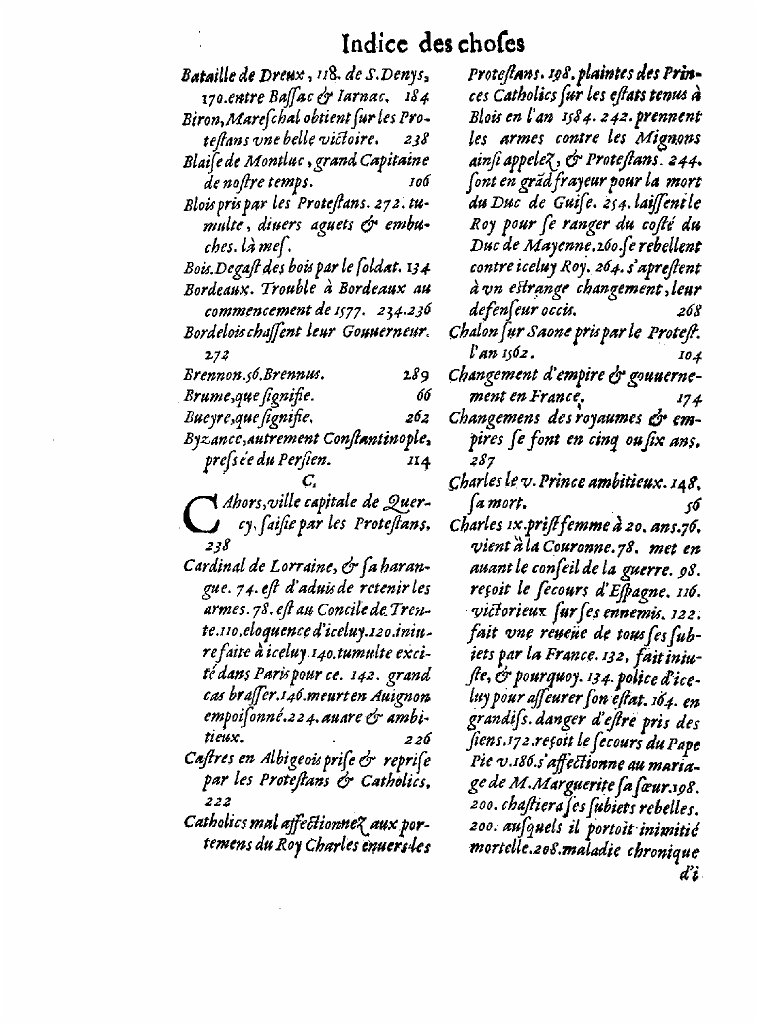 Indice des choſes
Bataille de Dreux, 118. de S. Denys,
170. entre Baſſac & Iarnac. 184
Biron, Mareſchal obtient ſur les Pro-
teſtans vne belle victoire. 238
Blaiſe de Montluc, grand Capitaine
de noſtre temps. 106
Blois pris par les Proteſtans. 272. tu-
multe, diuers aguets & embu-
ches. là meſ.
Bois. Degaſt des bois par le ſoldat. 134
Bordeaux. Trouble à Bordeaux au
commencement de 1577. 234.236
Bordelois chaſſent leur Gouuerneur.
272
Brennon. 56. Brennus. 289
Brume, que ſignifie. 66
Bueyre, que ſignifie. 262
Byzance, autrement Conſtantinople,
preſsée du Perſien. 114
C.
CAhors, ville capitale de Quer-
cy, ſaiſie par les Proteſtans.
238
Cardinal de Lorraine, & ſa haran-
gue. 74. eſt d'aduis de retenir les
armes. 78. eſt au Concile de Tren-
te. 110. eloquence d'iceluy. 120. iniu-
re faite à iceluy. 140. tumulte exci-
té dans Paris pour ce. 142. grand
cas braſſer. 146. meurt en Auignon
empoiſonné. 224. auare & ambi-
tieux. 226
Caſtres en Albigeois priſe & repriſe
par les Proteſtans & Catholics.
222
Catholics mal affectionnez aux por-
temens du Roy Charles enuers les
Proteſtans. 198. plaintes des Prin-
ces Catholics ſur les eſtats tenus à
Blois en l'an 1584. 242. prennent
les armes contre les Mignons
ainſi appelez, & Proteſtans. 244.
ſont en grãd frayeur pour la mort
du Duc de Guiſe. 254. laiſſent le
Roy pour ſe ranger du coſté du
Duc de Mayenne. 260. ſe rebellent
contre iceluy Roy. 264. s'apreſtent
à vn eſtrange changement, leur
defenſeur occis. 268
Chalon ſur Saone pris par le Proteſt.
l'an 1562. 104
Changement d'empire & gouuerne-
ment en France. 174
Changemens des royaumes & em-
pires ſe font en cinq ou ſix ans.
287
Charles le v. Prince ambitieux. 148.
ſa mort. 56
Charles ix. priſt femme à 20. ans. 76.
vient à la Couronne. 78. met en
auant le conſeil de la guerre. 98.
reçoit le ſecours d'Eſpagne. 116.
victorieux ſur ſes ennemis. 122.
fait vne reueüe de tous ſes ſub-
iets par la France. 132. fait iniu-
ſte, & pourquoy. 134. police d'ice-
luy pour aſſeurer ſon eſtat. 164. en
grandiſs. danger d'eſtre pris des
ſiens. 172. reçoit le ſecours du Pape
Pie v. 186. s'affectionne au maria-
ge de M. Marguerite ſa ſœur. 198.
200. chaſtiera ſes ſubiets rebelles.
200. auſquels il portoit inimitié
mortelle. 208. maladie chronique
d'i